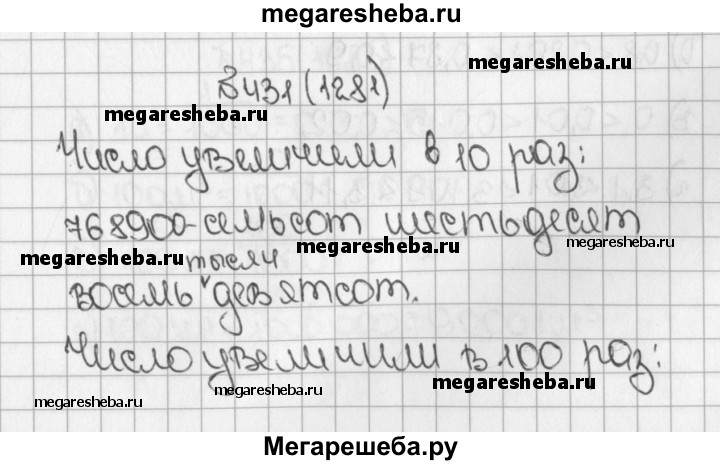 megaresheba.ru
№431 (1281)
megaresheba.ru
megaresheba.ru
Число увеличили в 10 раз:
768900-семьсот шестьдесят
megaresheba.ru
megaresheba.ru
megaresheba.ru
тысяч
восемь девятсот.
Число увеличили в 100 раз:
megaresheba.ru
megaresheba.ru
megaresheba.ru
Мегарешеба.ру